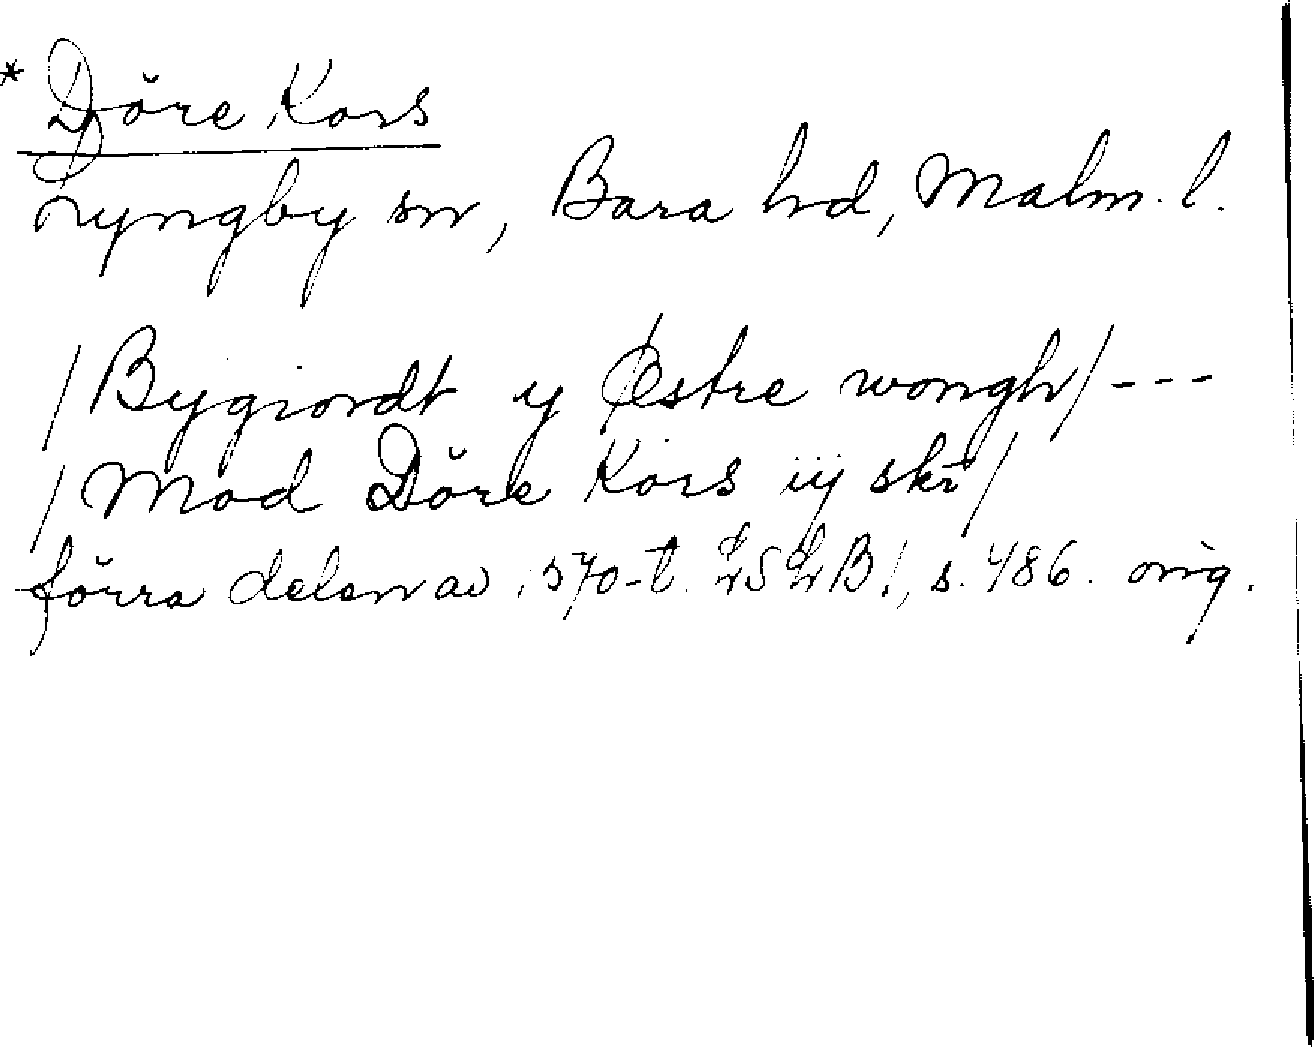 * Döre Kors
Lyngby sn, Bara hd, Malm. l.
/Bygiordt y Østre wongh/---
/Mod Döre Kors iij skr/
förra delen av 1570-t. LSLB!, s. 486. orig.